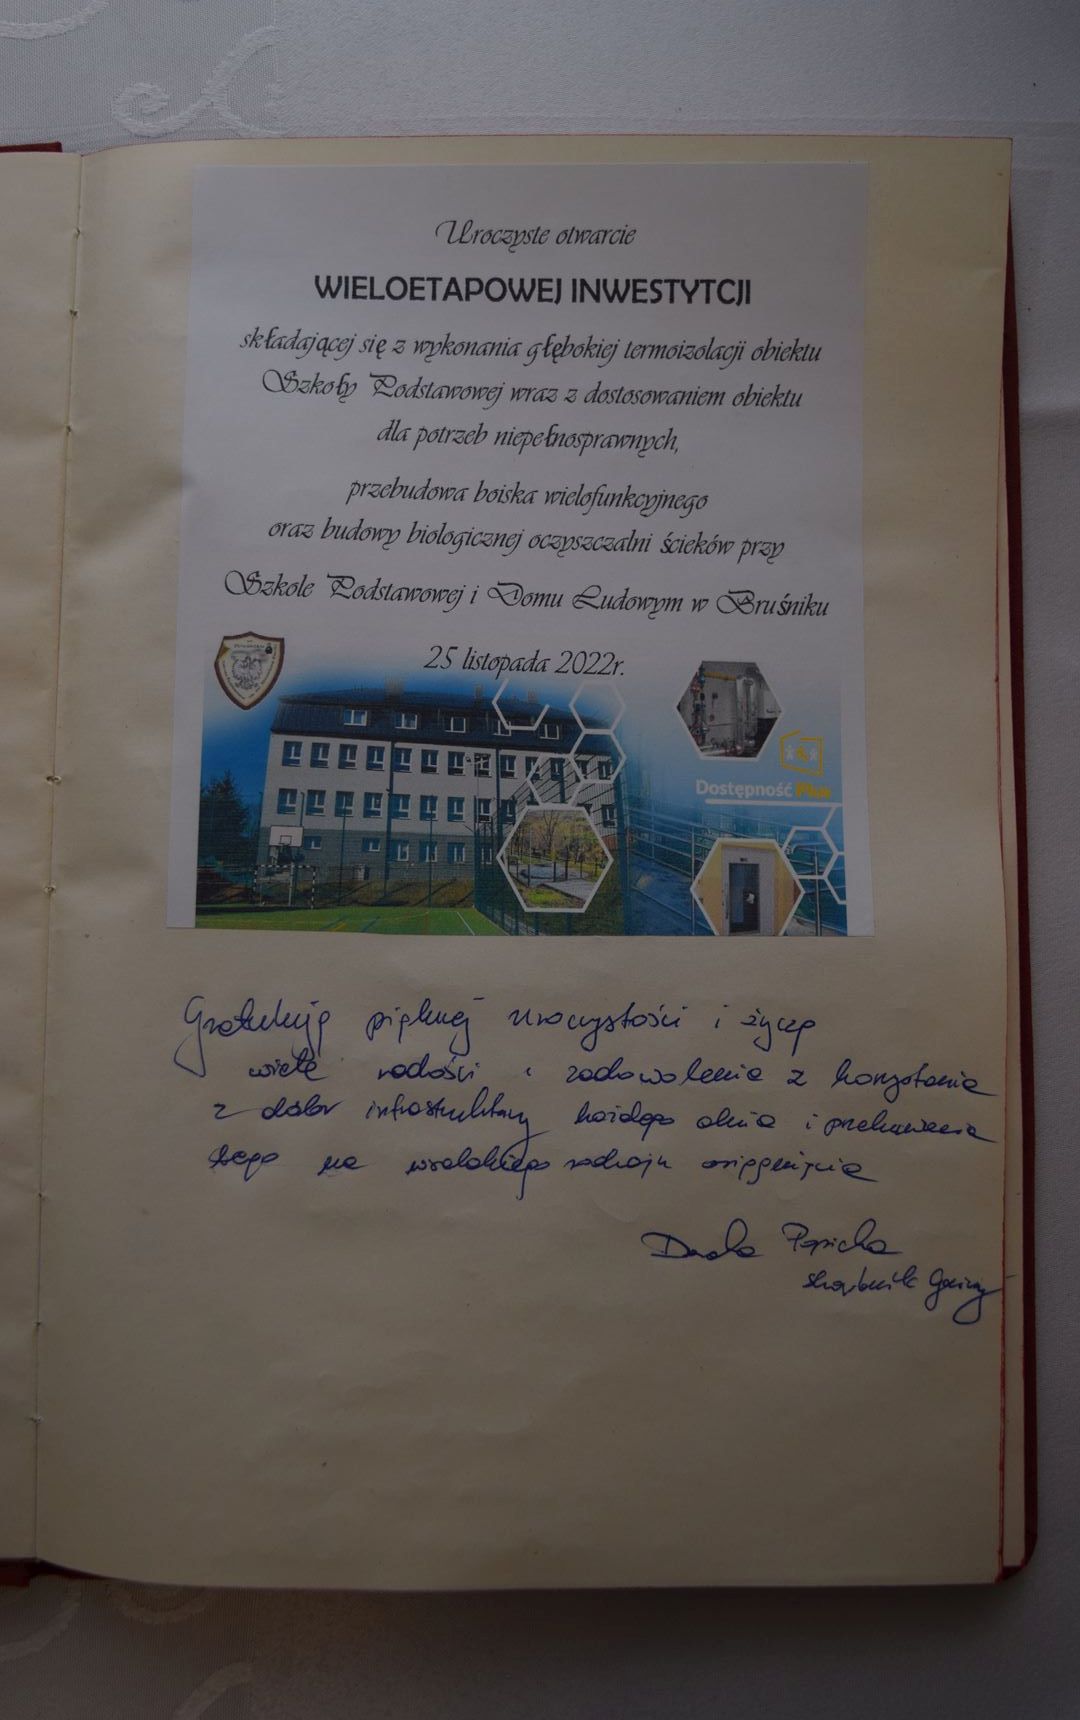 Uroczyste otwarcie
WIELOETAPOWEJ INWESTYTCJI
składającej się z wykonania głębokiej termoizolacji obiektu
Szkoły Podstawowej wraz z dostosowaniem obiektu
dla potrzeb niepełnosprawnych,
przebudowa boiska wielofunkcyjnego
oraz budowy biologicznej oczyszczalni ścieków przy
Szkole Podstawowej i Domu Ludowym w Bruśniku
25 listopada 2022r.
Dostępność Plus
Gratuluję pięknej uroczystości i życzę
wiele radości i zadowolenia z korzystania
z dóbr infrastruktury każdego dnia i przekuwania
tego na wszelakiego rodzaju osiągnięcia
Papicha
skarbnik Gminy